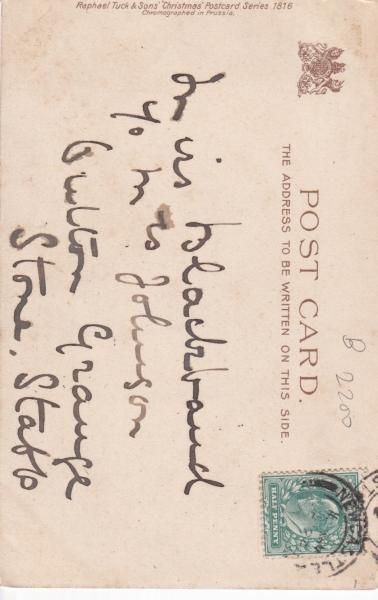 Raphael Tuck & Sons' "Christmas" Postcard Series 1816
Chromographed in Prussia.
POST CARD.
THE ADDRESS TO BE WRITTEN ON THIS SIDE.
B 2200
HALF PENNY
NEWCASTLE
Miss Blackband
c/o Mrs Johnson
Grange
Stone, Staffs